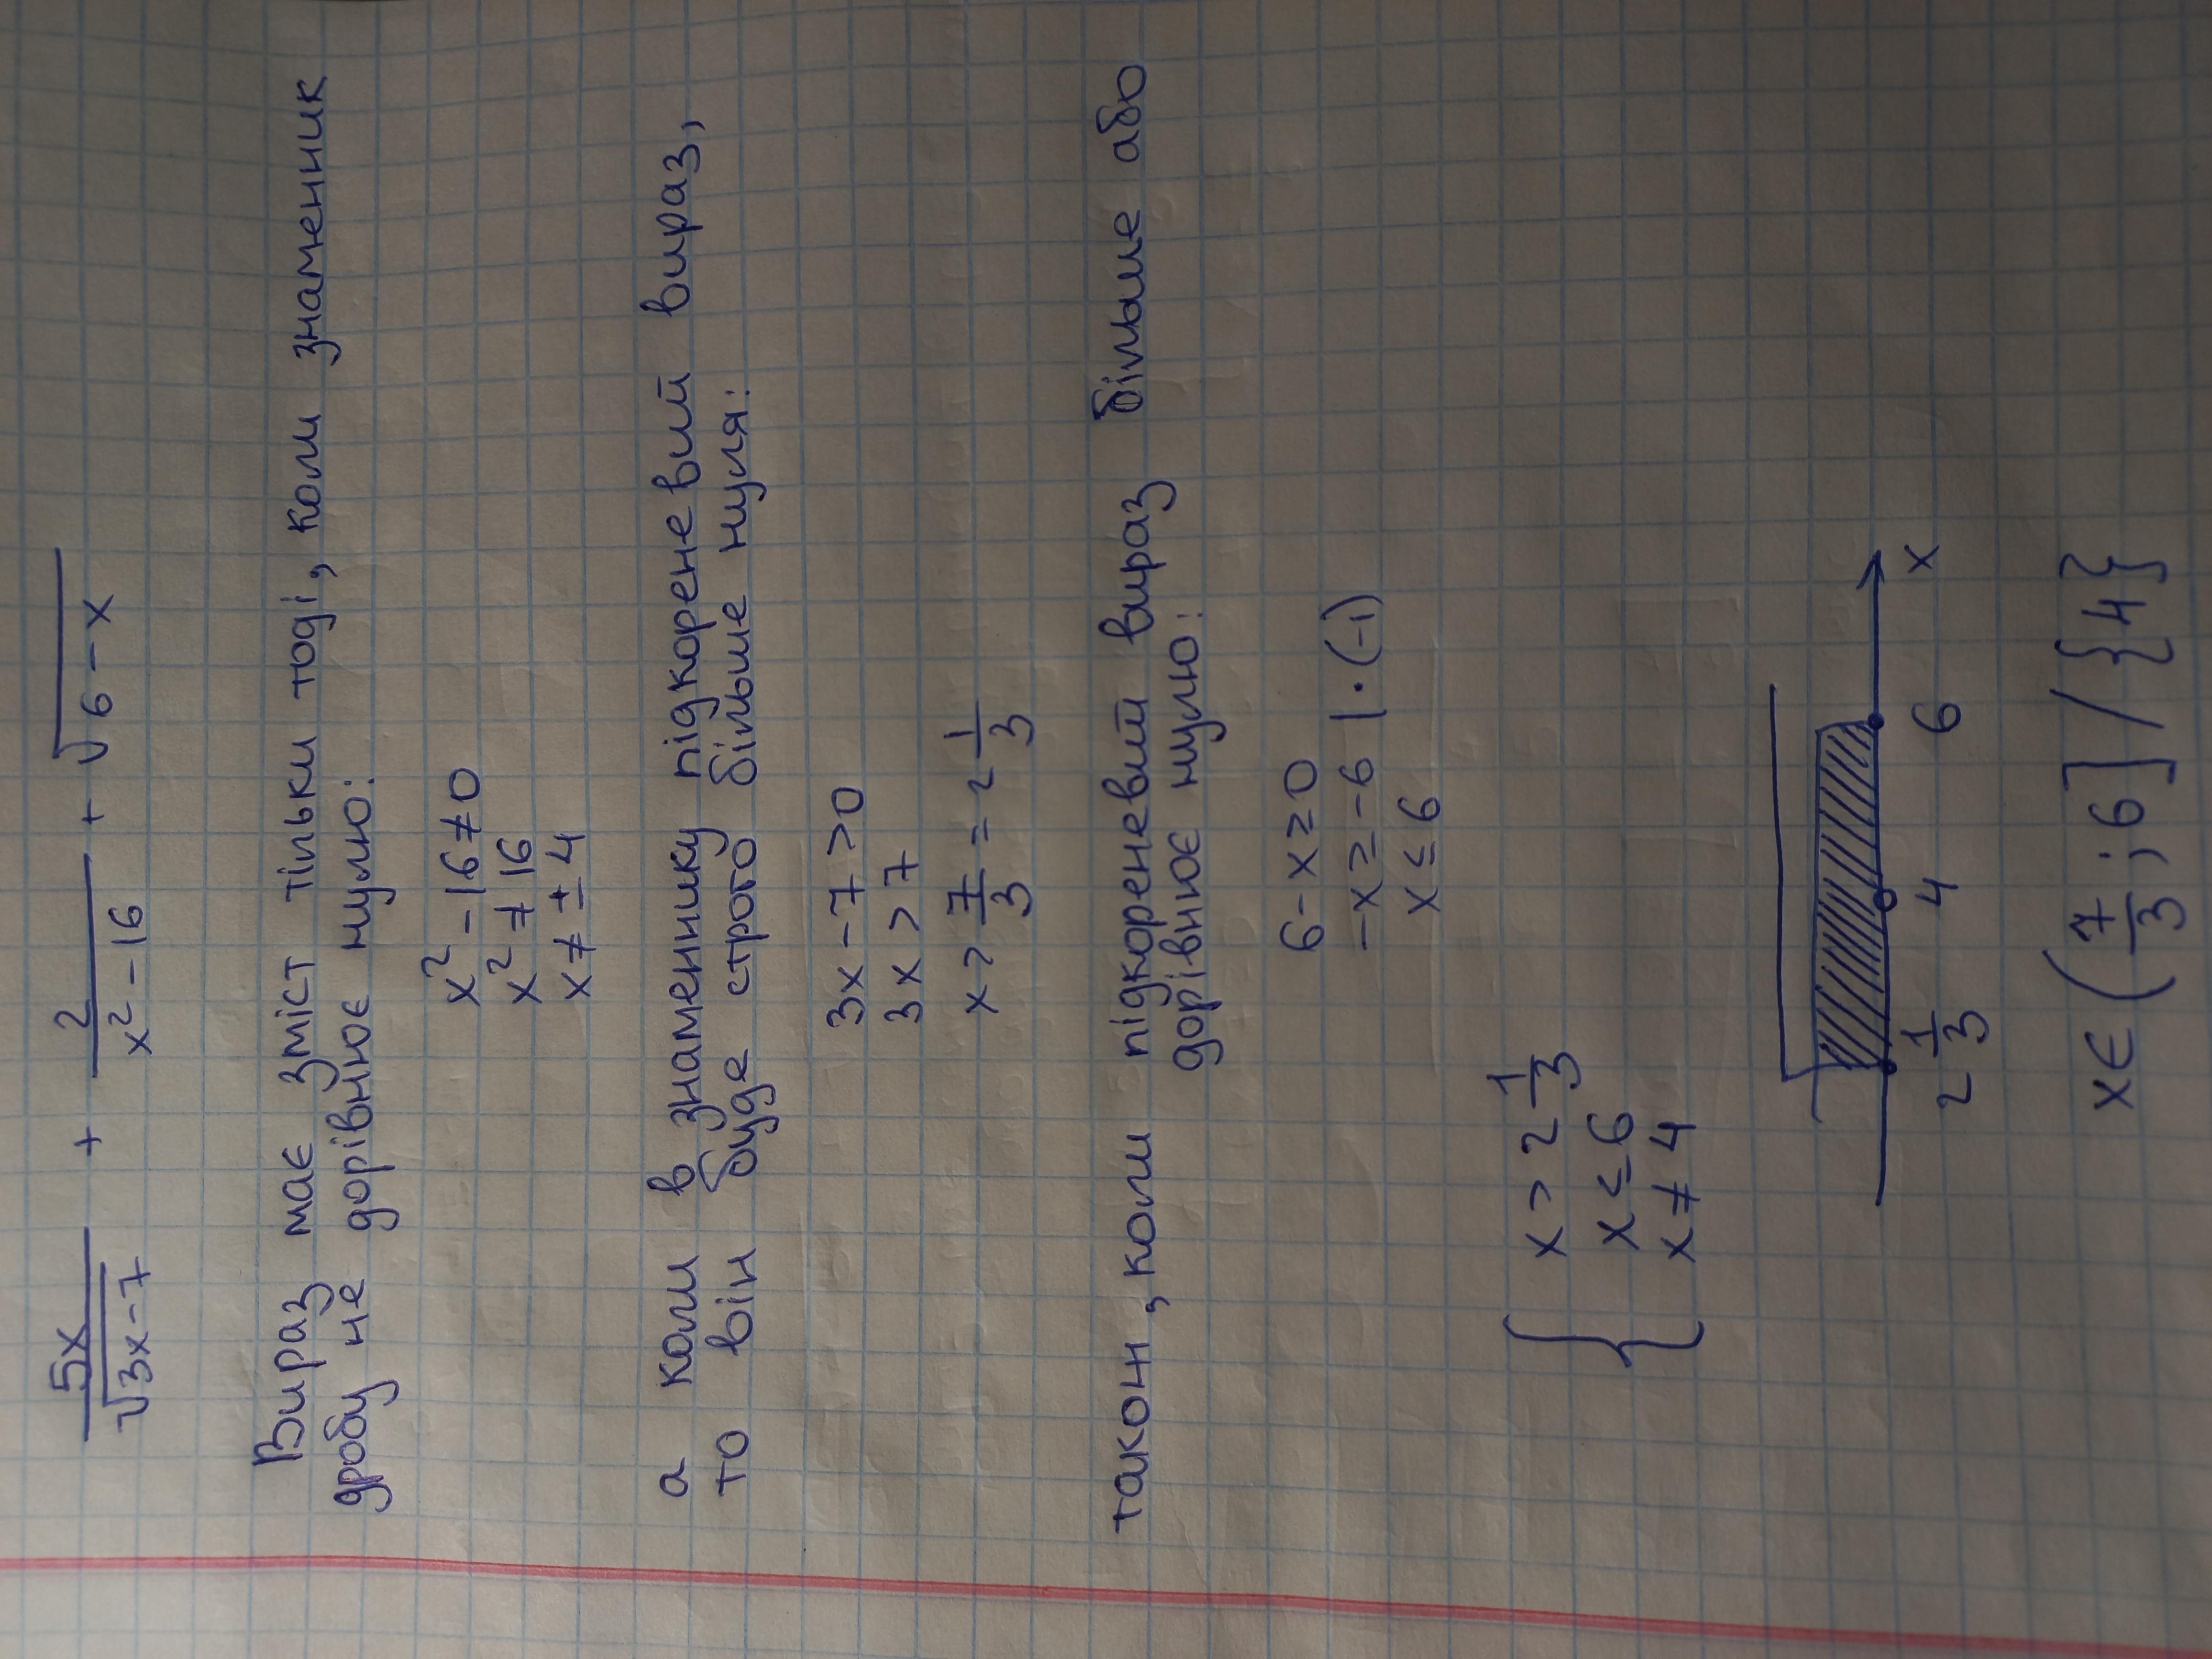 5x/√(3x-7) + 2/(x² - 16) + √(6-x)
Вираз має зміст тільки тоді, коли знаменник
дробу не дорівнює нулю:
x² - 16 ≠ 0
x² ≠ 16
x ≠ ± 4
а коли в знаменнику підкореневий вираз,
то він буде строго більше нуля:
3x - 7 > 0
3x > 7
x > 7/3 = 2 1/3
також, коли підкореневий вираз більше або
дорівнює нулю:
6 - x ≥ 0
-x ≥ -6 | · (-1)
x ≤ 6
{ x > 2 1/3
x ≤ 6
x ≠ 4
2 1/3 4 6 x
x ∈ (7/3; 6] / {4}